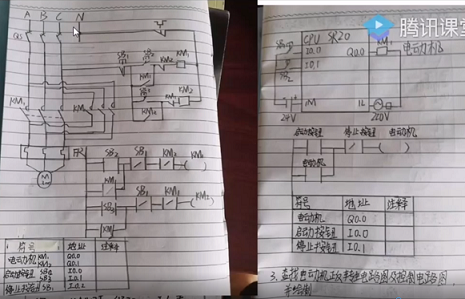 腾讯课堂
A B C N
QS
KM₁
KM₂
FR
M
SB₂
KM₁
SB₁
KM₂
符号 地址 注释
电动机 KM₁ Q0.0
KM₂ Q0.1
启动按钮 SB₂ I0.0
SB₃ I0.1
停止按钮 SB₁ I0.2
CPU SR20
I0.0 Q0.0
I0.1
KM
电动机
SB₂
M
1L
24V
220V
启动按钮 停止按钮 电动机
电动机
符号 地址 注释
电动机 Q0.0
启动按钮 I0.0
停止按钮 I0.1
3. 查找电动机正反转主电路图及控制电路图
并绘制